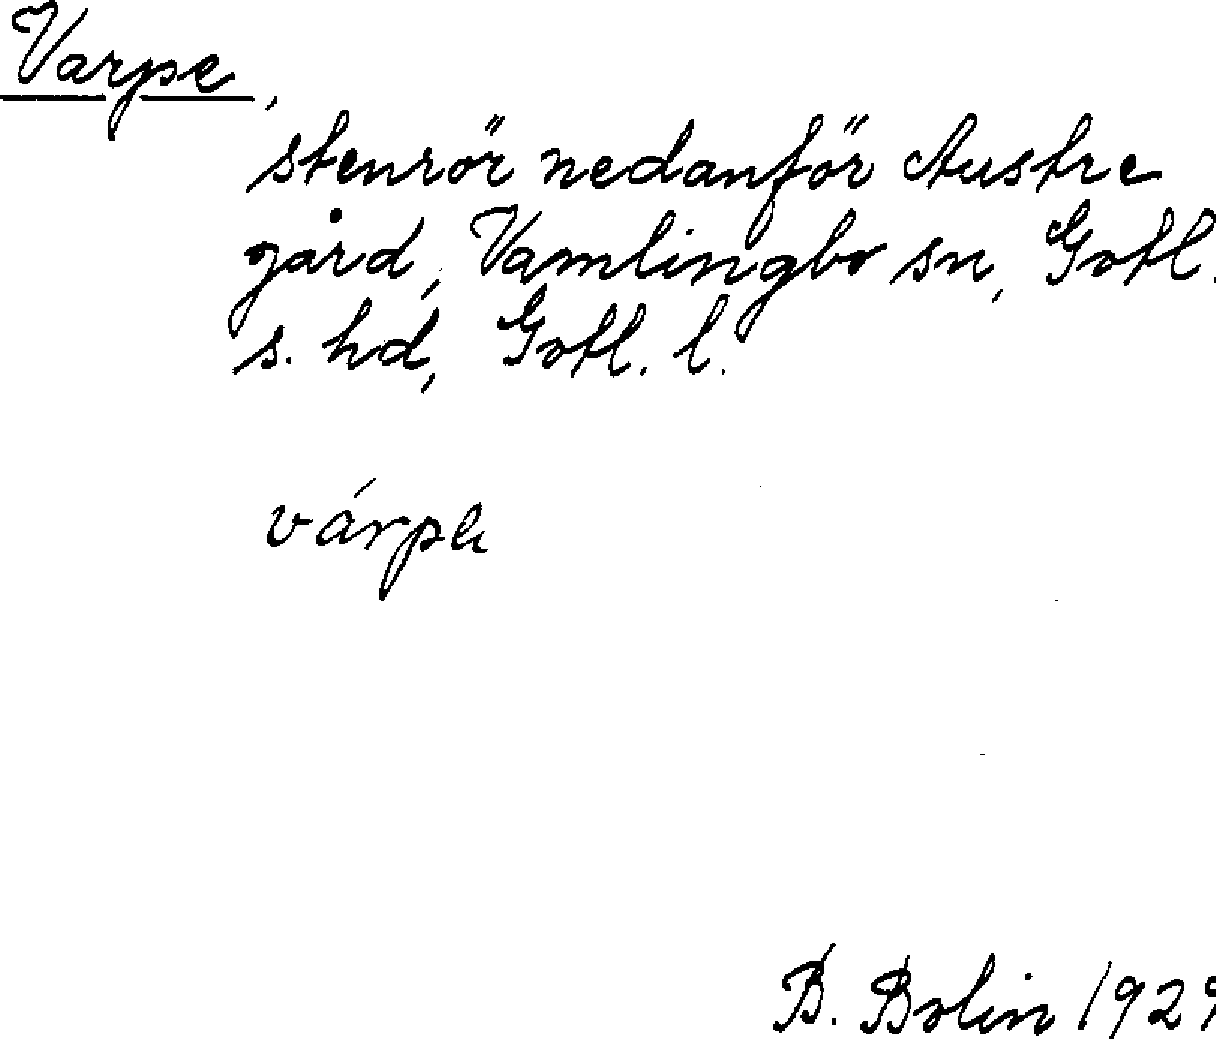 Varpe,
stenrör nedanför Austre
gård, Vamlingbo sn, Gotl.
s. hd, Gotl. l.
várpa
B. Bolin 1929